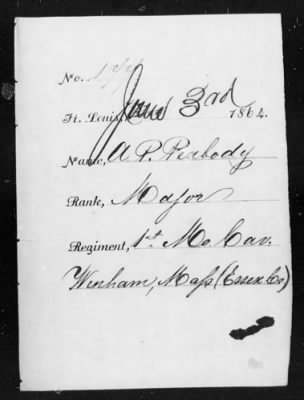 No.
St. Louis, June 3rd 1864.
Name, A. P. Peabody
Rank, Major
Regiment, 1st Mo Cav.
Wenham, Mass (Essex Co)